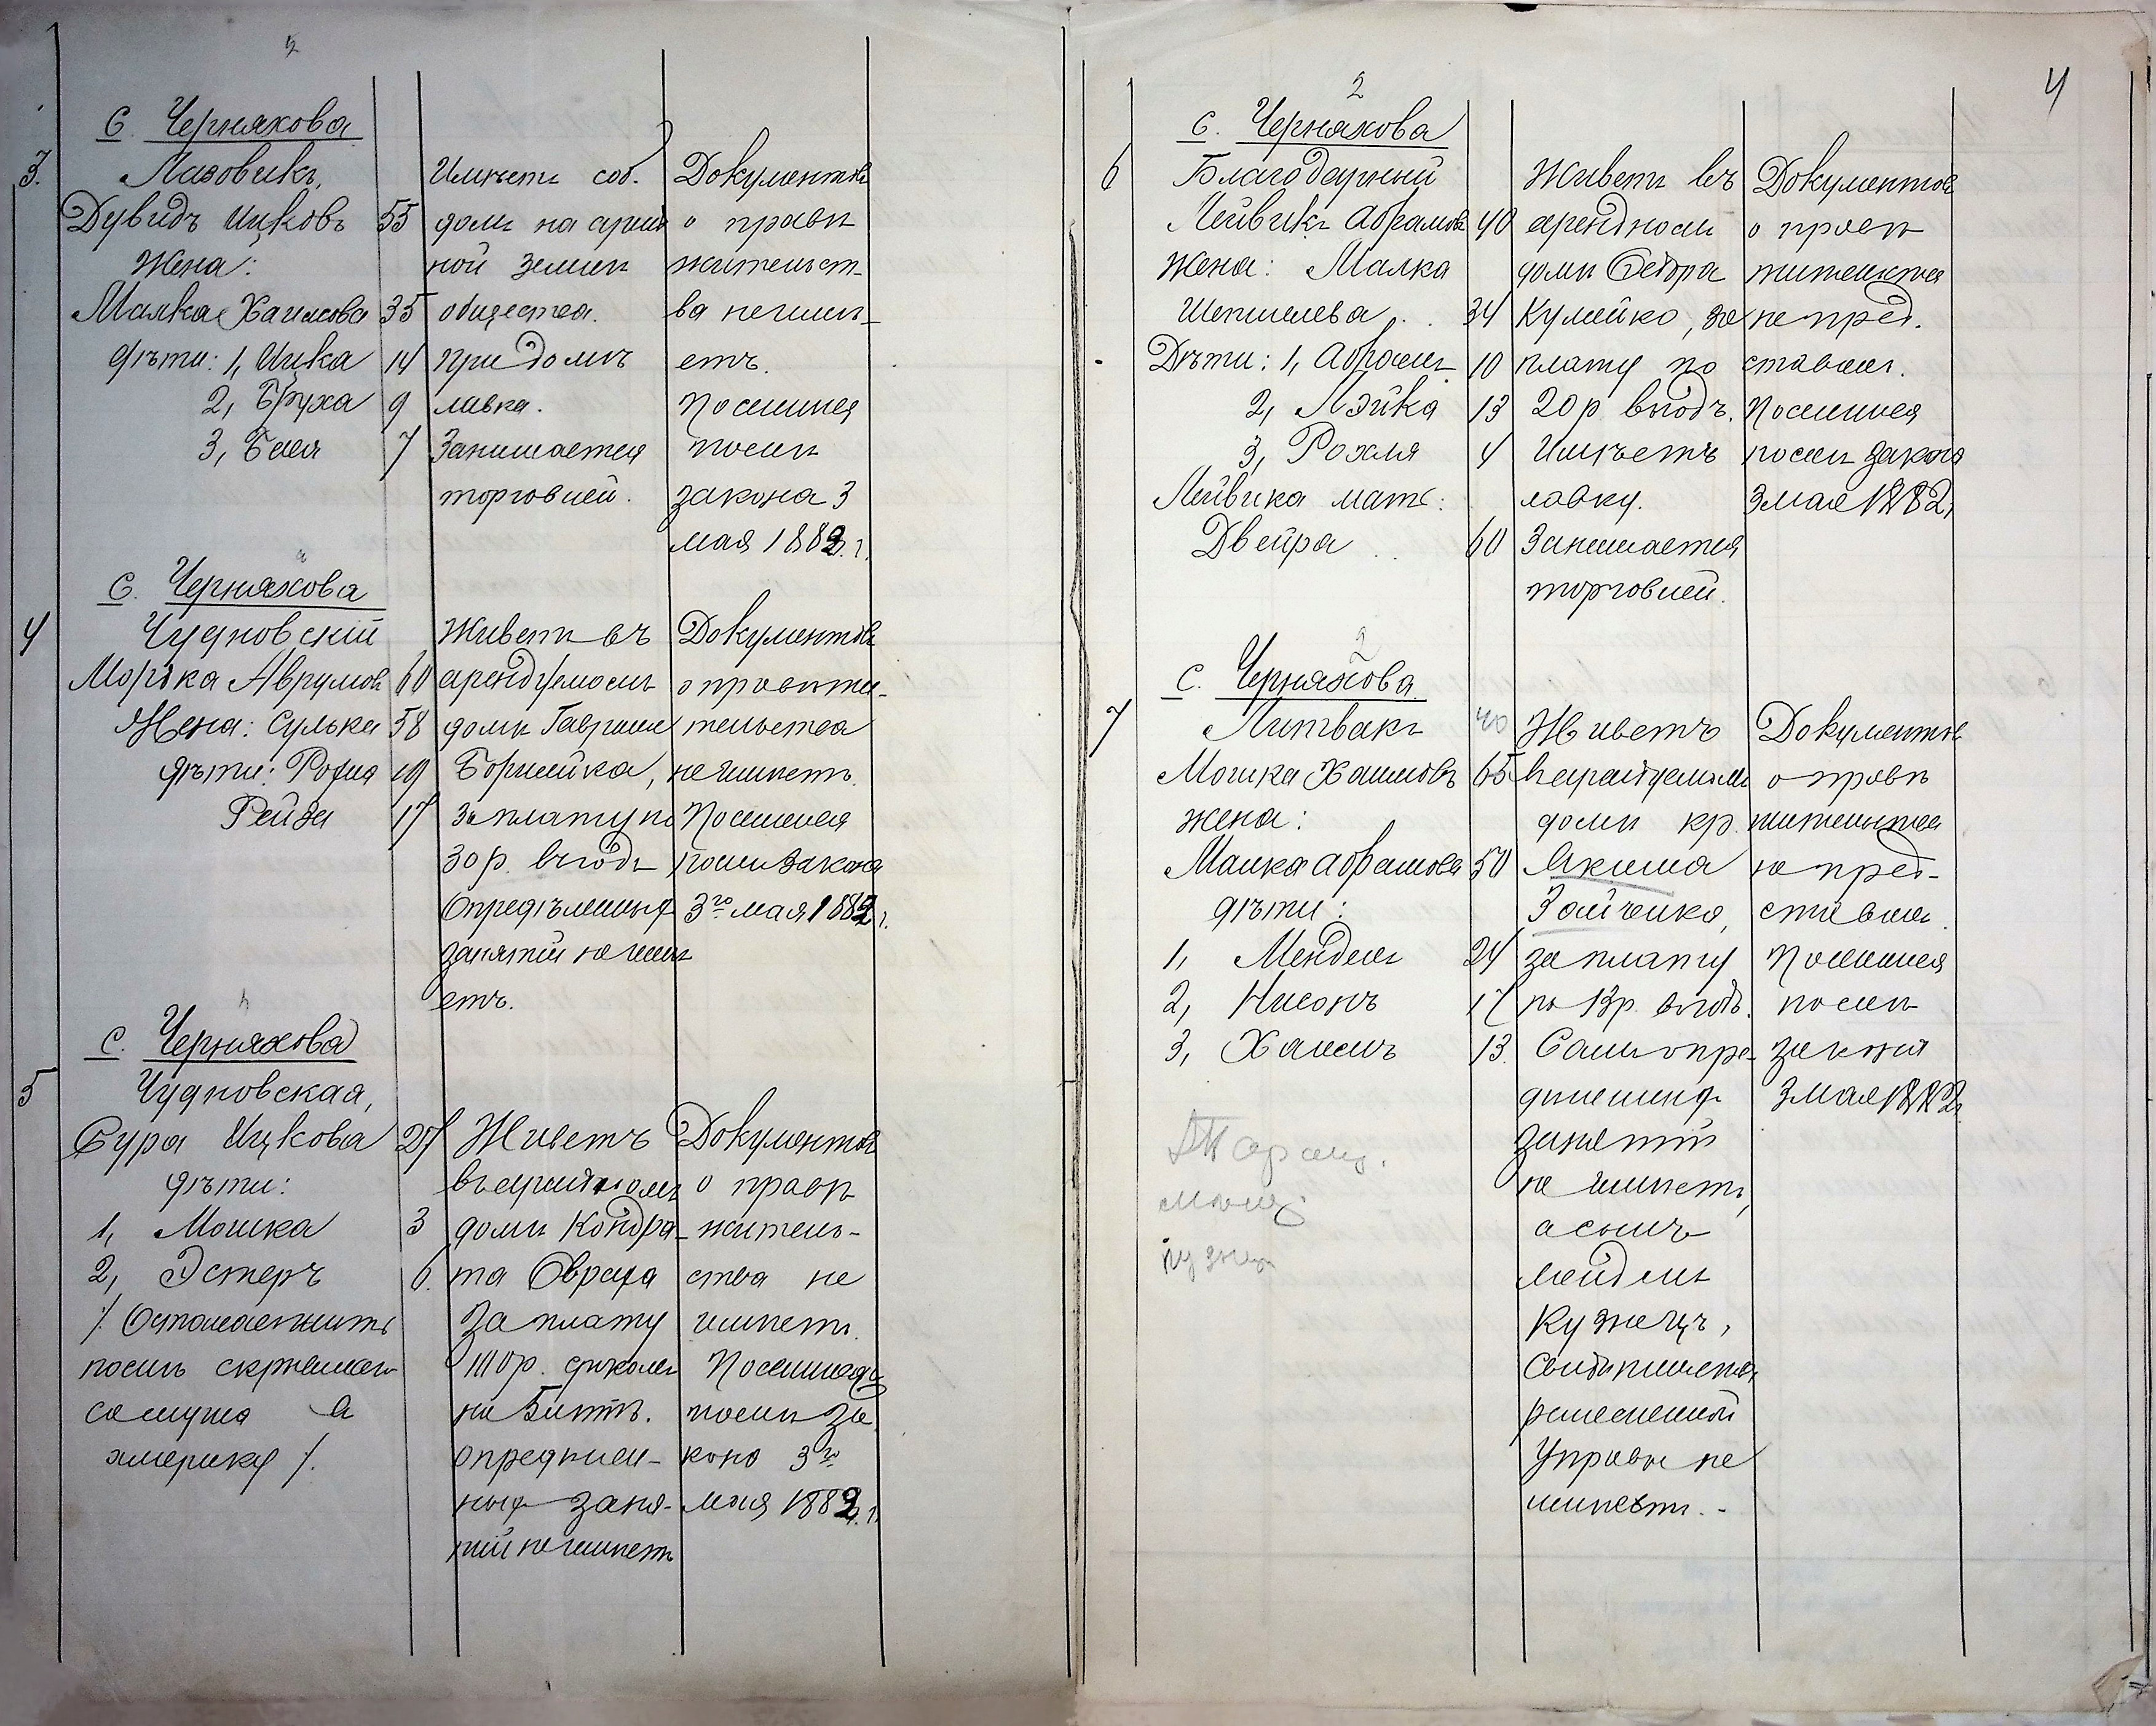 с. Черняхова
3. Лазовикъ,
Дувидъ Ицковъ 55
Жена:
Малка Хаимова 35
дѣти: 1, Ицка 14
2, Бруха 9
3, Бея 7
Имѣетъ соб.
домъ на аренд
ной земли
общества.
При домѣ
лавка.
Занимается
торговлей.
Документовъ
о правѣ
жительст-
ва неимѣ-
етъ.
Поселился
послѣ
закона 3
мая 1882 г.
с. Черняхова
4 Чудновскій
Мошка Аврумовъ 60
Жена: Сулька 58
дѣти: Рохля 19
Рейза 17
Живетъ въ
арендуемомъ
домѣ Гавриила
за плату по
30 р. въ годъ
Опредѣленныхъ
занятій не имѣ
етъ.
Документовъ
о правѣ жи-
тельства
не имѣетъ.
Поселился
послѣ закона
3го мая 1882 г.
с. Черняхова
5 Чудновская,
Сура Ицкова 27
дѣти:
1, Мошка 3
2, Эстеръ 6.
/. Осталась жить
послѣ
са мужа въ
америку /.
Живетъ
въ арендномъ
домѣ Кондра-
та Овраха
За плату
опредѣлен-
ныхъ заня-
тій не имѣетъ
Документовъ
о правѣ
житель-
ства не
имѣетъ.
Поселилась
послѣ за
кона 3го
мая 1882 г.
4
2
с. Черняхова
6 Благодарный
Лейвикъ Абрамовъ 40
Жена: Малка
Шепшелева . . 34
Дѣти: 1, Абрамъ 10
2, Лэйка 13
3, Рохля 4
Лейвика мать:
Двейра . . 60
Живетъ въ
арендномъ
домѣ Федора
Кумейко, за
плату по
20 р въ годъ.
Имѣетъ
лавку.
Занимается
торговлей.
Документовъ
о правѣ
жительства
не пред.
ставилъ.
Поселился
послѣ закона
3 мая 1882 г.
2
с. Черняхова
7 Литвакъ 40
Мошка Хаимовъ 65
жена:
Малка Абрамова 50
дѣти:
1, Мендель 24
2, Нисонъ 17
3, Хаимъ 13.
Живетъ
въ арендуемомъ
домѣ кр.
Якима
Зайченко,
за плату
по 13 р. въ годъ.
Самъ опре-
дѣленныхъ
занятій
не имѣетъ,
а сынъ
Мендель
Кузнецъ,
Свидѣтельства
ремесленной
Управы не
имѣетъ. -
Документовъ
о правѣ
жительства
не пред-
ставилъ.
Поселился
послѣ
закона
3 мая 1882 г.